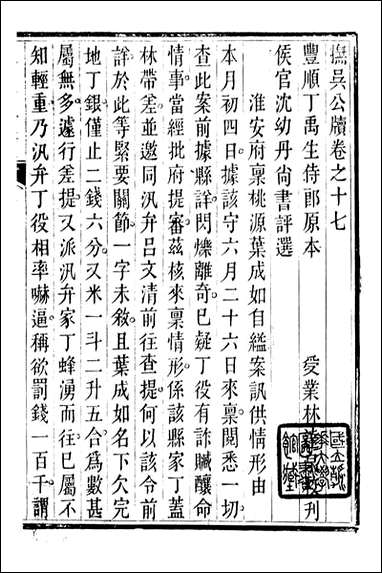 撫吳公牘卷之十七
豐順丁禹生侍郎原本 受業林
侯官沈幼丹尚書評選 刊
淮安府稟桃源葉成如自縊案訊供情形由
本月初四日據該守六月二十六日來稟閱悉一切
查此案前據縣詳閃爍離奇已疑丁役有詐贓釀命
情事當經批府提審茲核來稟情形係該縣家丁蓋
林帶差並邀同汛弁呂文清前往查提何以該令前
詳於此等緊要關節一字未敘且葉成如名下欠完
地丁銀僅止二錢六分又米一斗二升五合為數甚
屬無多遽行差提又派汛弁家丁蜂湧而往已屬不
知輕重乃汛弁丁役相率嚇逼稱欲罰錢一百千謂